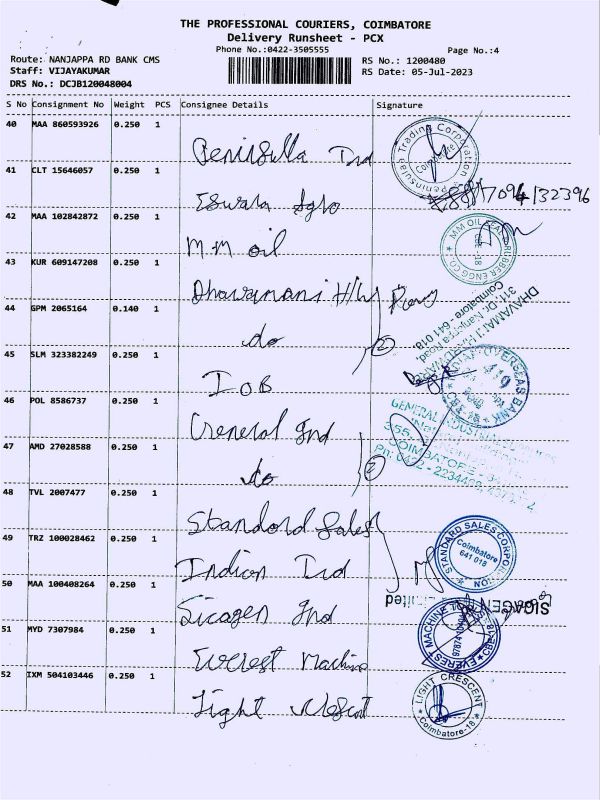 THE PROFESSIONAL COURIERS, COIMBATORE
Delivery Runsheet - PCX
Phone No.:0422-3505555
Page No.:4
Route: NANJAPPA RD BANK CMS
RS No.: 1200480
Staff: VIJAYAKUMAR
RS Date: 05-Jul-2023
DRS No.: DCJB120048004
S No Consignment No Weight PCS Consignee Details Signature
40 MAA 860593926 0.250 1
Peninsulla Trd
Peninsulaa Trading Corporation Coimbatore
41 CLT 15646057 0.250 1
Eswara Agro
7094132396
42 MAA 102842872 0.250 1
M.M oil
MM OIL SEAL RUBBER ENGG CO.
43 KUR 609147208 0.250 1
Dhavamani H/W
311, Dr. Nanjappa Road,
Coimbatore - 641 018.
44 GPM 2065164 0.140 1
do
2
45 SLM 323382249 0.250 1
IOB
OVERSEAS BANK
46 POL 8586737 0.250 1
General Ind
GENERAL
47 AMD 27028588 0.250 1
do
2
COIMBATORE
48 TVL 2007477 0.250 1
Standord Sales
STANDARD SALES CORPORATION
Coimbatore
641 018
49 TRZ 100028462 0.250 1
Indian Trd
50 MAA 100408264 0.250 1
Sicagen Ind
SICAGEN
51 MYD 7307984 0.250 1
Everest Machine
EVEREST MACHINE
52 IXM 504103446 0.250 1
Light
LIGHT CRESCENT
Coimbatore-18